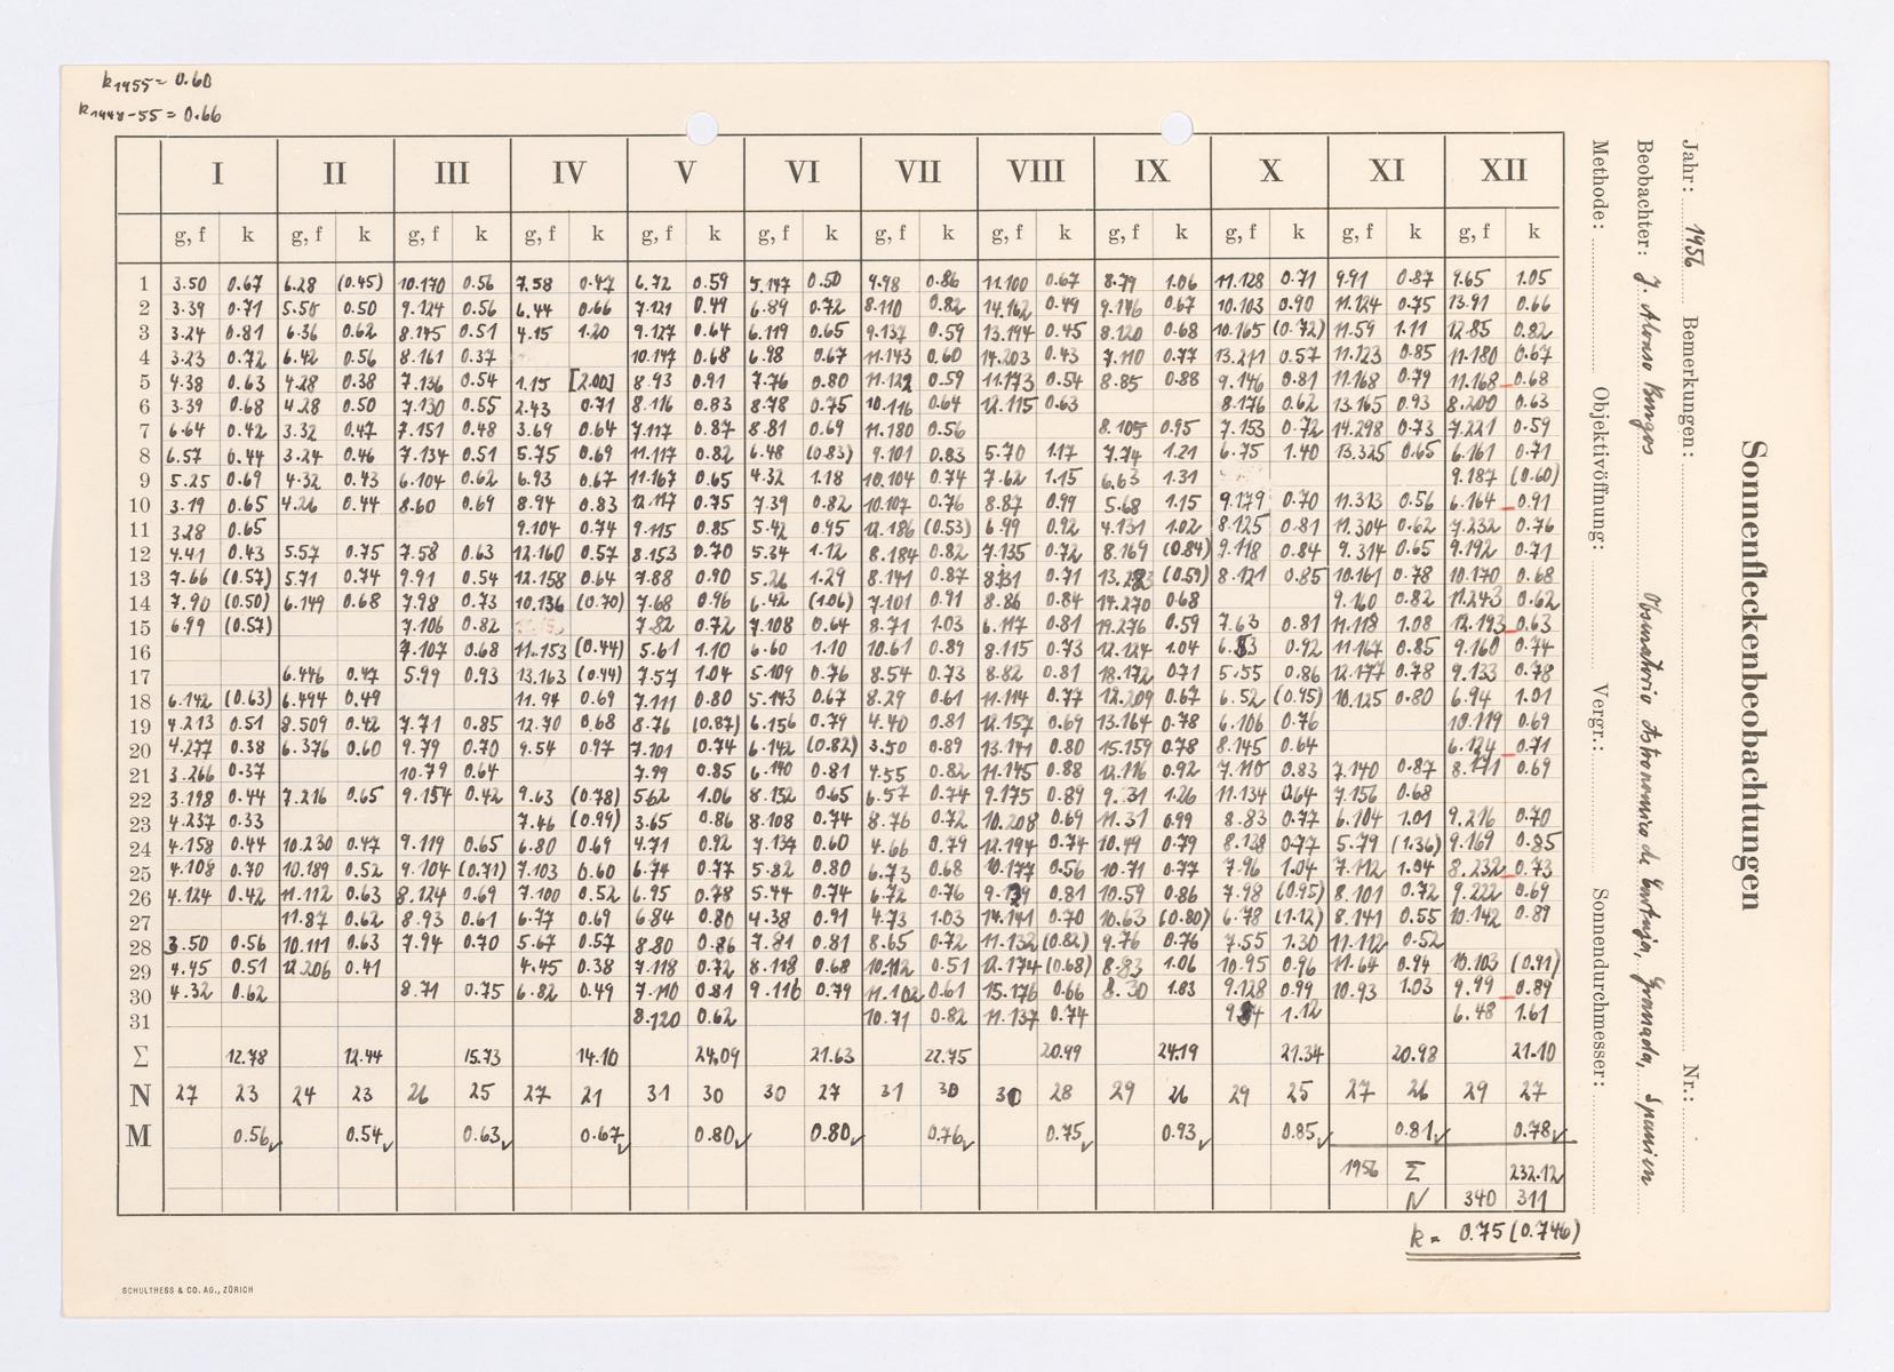 k1955 = 0.60
k1948-55 = 0.66
I II III IV V VI VII VIII IX X XI XII
g, f k g, f k g, f k g, f k g, f k g, f k g, f k g, f k g, f k g, f k g, f k g, f k
1 3.50 0.67 6.28 (0.45) 10.170 0.56 7.58 0.47 6.72 0.59 5.147 0.50 9.98 0.86 11.100 0.67 8.79 1.06 11.128 0.71 9.91 0.87 9.65 1.05
2 3.39 0.71 5.58 0.50 9.124 0.56 6.44 0.66 7.121 0.49 6.89 0.72 8.110 0.82 14.162 0.49 9.146 0.67 10.103 0.90 11.124 0.75 13.91 0.66
3 3.24 0.81 6.36 0.62 8.145 0.51 4.15 1.20 9.127 0.64 6.119 0.65 9.132 0.59 13.194 0.45 8.120 0.68 10.165 (0.72) 11.59 1.11 12.85 0.82
4 3.23 0.72 6.42 0.56 8.161 0.37 10.147 0.68 6.98 0.67 11.143 0.60 14.203 0.43 7.110 0.77 13.211 0.57 11.123 0.85 11.180 0.67
5 4.38 0.63 4.28 0.38 7.136 0.54 1.15 [2.00] 8.93 0.91 7.76 0.80 11.122 0.59 11.173 0.54 8.85 0.88 9.146 0.81 11.168 0.79 11.168 0.68
6 3.39 0.68 4.28 0.50 7.130 0.55 2.43 0.71 8.116 0.83 8.78 0.75 10.116 0.64 12.115 0.63 8.176 0.62 13.165 0.93 8.200 0.63
7 6.64 0.42 3.32 0.47 7.151 0.48 3.69 0.64 7.117 0.87 8.81 0.69 11.180 0.56 8.105 0.95 7.153 0.72 14.298 0.73 7.221 0.59
8 6.57 0.44 3.24 0.46 7.134 0.51 5.75 0.69 11.117 0.82 6.48 (0.83) 9.101 0.83 5.70 1.17 7.74 1.21 6.75 1.40 13.325 0.65 6.161 0.71
9 5.25 0.69 4.32 0.43 6.104 0.62 6.93 0.67 11.167 0.65 4.32 1.18 10.104 0.74 7.62 1.15 6.63 1.31 9.187 (0.60)
10 3.19 0.65 4.26 0.44 8.60 0.69 8.94 0.83 12.117 0.75 7.39 0.82 10.107 0.76 8.87 0.99 5.68 1.15 9.179 0.70 11.313 0.56 6.164 0.91
11 3.28 0.65 9.104 0.74 9.115 0.85 5.42 0.95 12.186 (0.53) 6.99 0.92 4.131 1.02 8.125 0.81 11.304 0.62 7.232 0.76
12 4.41 0.43 5.57 0.75 7.58 0.63 12.160 0.57 8.153 0.70 5.34 1.12 8.184 0.82 7.135 0.72 8.169 (0.84) 9.118 0.84 9.314 0.65 9.192 0.71
13 7.66 (0.57) 5.71 0.74 9.91 0.54 12.158 0.64 7.88 0.90 5.26 1.29 8.141 0.87 8.131 0.71 (0.59) 8.121 0.85 10.161 0.78 10.170 0.68
14 7.90 (0.50) 6.149 0.68 7.98 0.73 10.136 (0.70) 7.68 0.96 6.42 (1.06) 7.101 0.91 8.86 0.84 14.270 0.68 9.160 0.82 11.243 0.62
15 6.99 (0.57) 7.106 0.82 7.82 0.72 7.108 0.64 8.71 1.03 6.117 0.81 19.276 0.59 7.63 0.81 11.118 1.08 12.193 0.63
16 7.107 0.68 11.153 (0.44) 5.61 1.10 6.60 1.10 10.61 0.89 8.115 0.73 12.124 1.04 0.92 11.167 0.85 9.160 0.74
17 6.446 0.47 5.99 0.93 13.163 (0.44) 7.57 1.04 5.109 0.76 8.54 0.73 8.82 0.81 18.172 0.71 5.55 0.86 12.177 0.78 9.133 0.78
18 6.142 (0.63) 6.494 0.49 11.94 0.69 7.111 0.80 5.143 0.67 8.29 0.61 11.114 0.77 12.209 0.67 6.52 (0.95) 10.125 0.80 6.94 1.01
19 4.213 0.51 8.509 0.42 7.71 0.85 12.70 0.68 8.76 (0.87) 6.156 0.79 4.40 0.81 12.157 0.69 13.164 0.78 6.106 0.76 10.119 0.69
20 4.277 0.38 6.376 0.60 9.79 0.70 9.54 0.97 7.101 0.74 6.142 (0.82) 3.50 0.89 13.141 0.80 15.159 0.78 8.145 0.64 6.124 0.71
21 3.266 0.37 10.79 0.64 7.99 0.85 6.140 0.81 4.55 0.82 11.145 0.88 12.116 0.92 7.110 0.83 7.140 0.87 8.171 0.69
22 3.198 0.44 7.216 0.65 9.154 0.42 9.63 (0.78) 5.62 1.06 8.152 0.65 6.57 0.74 9.175 0.89 9.31 1.26 11.134 0.64 7.156 0.68
23 4.237 0.33 7.46 (0.99) 3.65 0.86 8.108 0.74 8.76 0.72 10.208 0.69 11.31 0.99 8.83 0.77 6.104 1.01 9.216 0.70
24 4.158 0.44 10.230 0.47 9.119 0.65 6.80 0.69 4.71 0.92 7.137 0.60 4.66 0.79 12.194 0.74 10.49 0.79 8.128 0.77 5.79 (1.36) 9.169 0.85
25 4.108 0.70 10.189 0.52 9.104 (0.71) 7.103 0.60 6.74 0.77 5.82 0.80 6.73 0.68 10.177 0.56 10.71 0.77 7.96 1.04 7.112 1.04 8.232 0.73
26 4.124 0.42 11.112 0.63 8.124 0.69 7.100 0.52 6.95 0.78 5.44 0.74 6.72 0.76 0.81 10.59 0.86 7.98 (0.95) 8.101 0.72 9.222 0.69
27 11.87 0.62 8.93 0.61 6.77 0.69 6.84 0.80 4.38 0.91 4.73 1.03 14.141 0.70 10.63 (0.80) 6.78 (1.12) 8.141 0.55 10.142 0.89
28 3.50 0.56 10.111 0.63 7.94 0.70 5.67 0.57 8.80 0.86 7.81 0.81 8.65 0.72 11.132 (0.82) 9.76 0.76 7.55 1.30 11.112 0.52
29 4.45 0.51 12.206 0.41 4.45 0.38 7.118 0.72 8.118 0.68 10.112 0.51 12.174 (0.68) 8.83 1.06 10.95 0.96 11.64 0.94 10.103 (0.91)
30 4.32 0.62 8.71 0.75 6.82 0.49 7.110 0.81 9.116 0.79 11.102 0.61 15.176 0.66 8.30 1.03 9.128 0.99 10.93 1.03 9.99 0.89
31 8.120 0.62 10.71 0.82 11.137 0.74 1.12 6.48 1.61
Σ 12.78 12.44 15.73 14.10 24.09 21.63 22.75 20.99 24.19 21.34 20.98 21.10
N 27 23 24 23 26 25 27 21 31 30 30 27 31 30 30 28 29 26 29 25 27 26 29 27
M 0.56 0.54 0.63 0.67 0.80 0.80 0.76 0.75 0.93 0.85 0.81 0.78
1956 Σ 232.12
N 340 311
k = 0.75 (0.746)
SCHULTHESS & CO. AG., ZÜRICH
Sonnenfleckenbeobachtungen
Jahr: 1956 Bemerkungen: Nr.:
Beobachter: J. Alonso Burgos Observatorio Astronomico de Cartuja, Granada, Spanien
Methode: Objektivöffnung: Vergr.: Sonnendurchmesser: